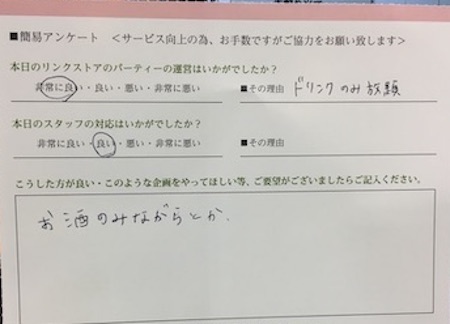 ■簡易アンケート ＜サービス向上の為、お手数ですがご協力をお願い致します＞
本日のリンクストアのパーティーの運営はいかがでしたか？
非常に良い・良い・悪い・非常に悪い ■その理由 ドリンクのみ放題
本日のスタッフの対応はいかがでしたか？
非常に良い・良い・悪い・非常に悪い ■その理由
こうした方が良い・このような企画をやってほしい等、ご要望がございましたらご記入ください。
お酒のみながらとか.